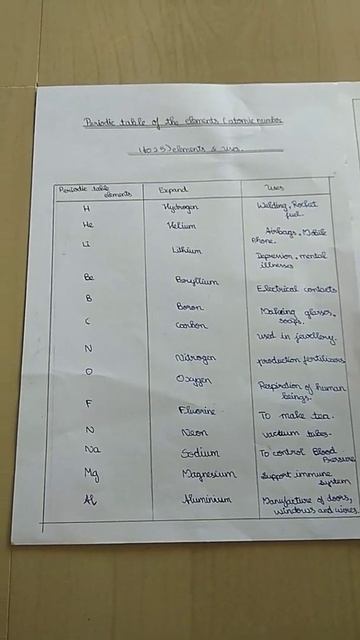 Periodic table of the elements (atomic number
1 to 25) elements & uses.
Periodic table elements Expand Uses
H Hydrogen Welding, Rocket fuel.
He Helium Airbags, Mobile Phone.
Li Lithium Depression, mental illnesses
Be Beryllium Electrical contacts
B Boron Making glasses, soaps.
C Carbon used in jewellery.
N Nitrogen production fertilizers
O Oxygen Respiration of human beings.
F Fluorine To make tea.
N Neon vacuum tubes.
Na Sodium To control Blood Pressure
Mg Magnesium Support immune system
Al Aluminium Manufacture of doors, windows and wires.